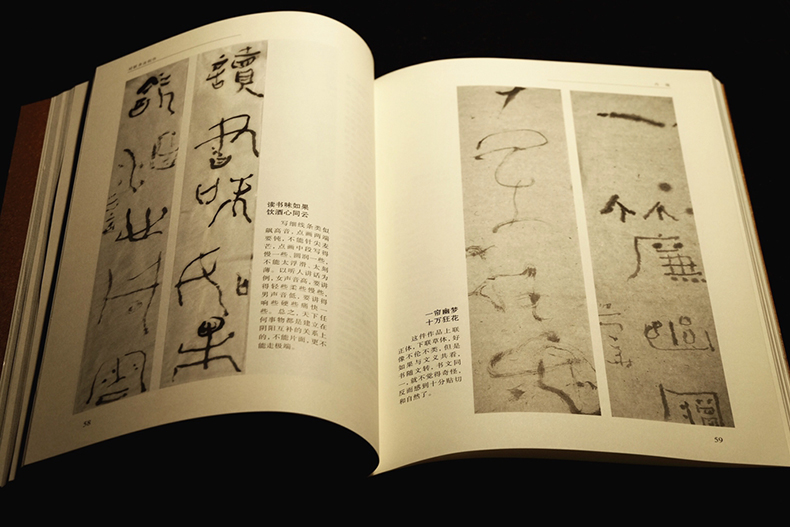 讀書味如果
读书味如果
饮酒心同云
写细线条类似
飙高音，点画两端
要钝，不能针尖麦
芒，点画中段写得
慢一些，圆润一些，
不能太浮滑、太刻
薄。以听人讲话为
例，女声音高，要讲
得轻些柔些慢些，
男声音低，要讲得
响些硬些痛快一
些。总之，天下任
何事物都是建立在
阴阳互补的关系上
的，不能片面，更不
能走极端。
58
一簾幽夢
一帘幽梦
十万狂花
这件作品上联
正体，下联草体，好
像不伦不类，但是
如果与文义共看，
书随文转，书文同
一，就不觉得奇怪，
反而感到十分贴切
和自然了。
59